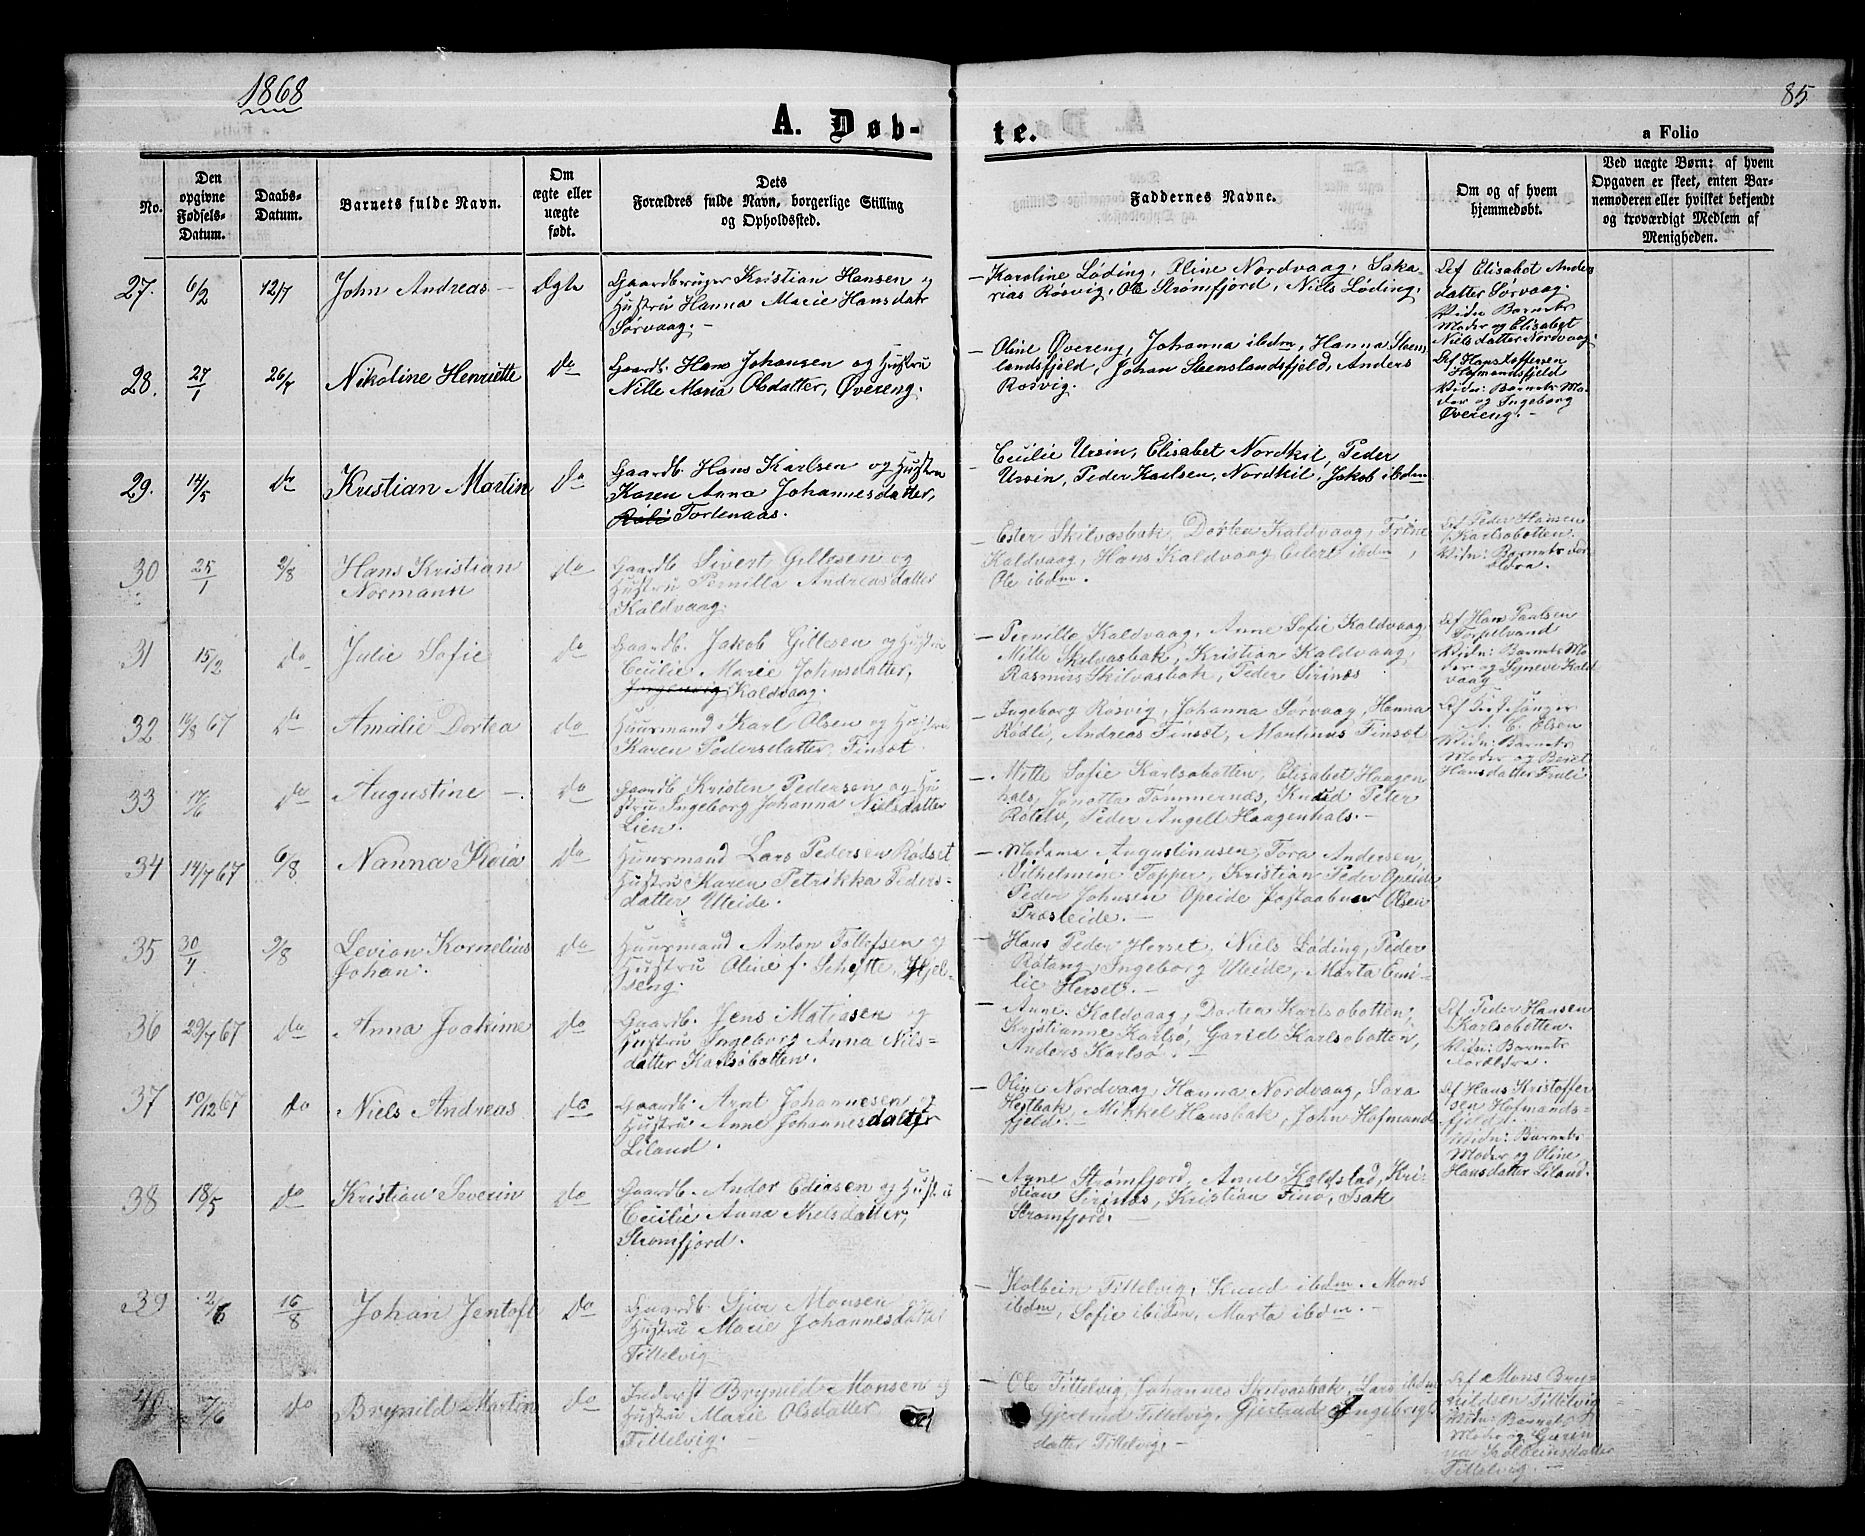 1868
85.
A. Døb-
te.
a Folio
No.
Den opgivne Fødsels-Datum.
Daabs-Datum.
Barnets fulde Navn.
Om ægte eller uægte født.
Dets Forældres fulde Navn, borgerlige Stilling og Opholdssted.
Faddernes Navne.
Om og af hvem hjemmedøbt.
Ved uægte Børn: af hvem Opgaven er skeet, enten Barnemoderen eller hvilket bekjendt og troværdigt Medlem af Menigheden.
27. 6/2 12/7 John Andreas – Ægte
Gaardbruger Kristian Hansen og
Hustru Hanna Marie Hansdatr
Sørvaag. –
– Karoline Løding, Oline Nordvaag, Saka-
rias Røsvig, Ole Strømfjord, Niels Løding.
Af Elisabet Anders
datter Sørvaag.
Vidn Barnets
Moder og Elisabet
Nielsdatter Nordvaag
28. 27/1 26/7 Nikoline Henriette Do
Gaardb. Hans Johansen og Hustru
Nille Maria Olsdatter, Øvereng.
– Oline Øvereng, Johanna ibdm, Hanna Stens-
landsfjeld, Johan Stenslandsfjeld, Anders
Rosvig.
Vidn: Barnets Mo-
der og Ingeborg
Øvereng. –
29. 14/5 Do Kristian Martin Do
Gaardb. Hans Karlsen og Hustru
Karen Anna Johannesdatter,
Tortenaas.
– Cecilie Ursin, Elisabet Nordkil, Peder
Ursin, Peder Karlsen, Nordkil, Jakob ibdm
30 25/1 2/8 Hans Kristian
Normann Do
Gaardb Sivert Gillesen og
Hustru Pernilla Andreasdatter
Kaldvaag.
Ester Skilvasbak, Dortea Kaldvaag, Trine
Kaldvaag, Hans Kaldvaag Edert ibdm,
Ole ibdm.
Af Peder Hansen
Karlsobotten.
Vidn: Barnets For-
ældra.
31 15/2 Do Julie Sofie Do
Gaardb. Jakob Gillesen og Hustru
Cecilie Marie Johnsdatter,
Kaldvaag.
– Pernille Kaldvaag, Anne Sofie Kaldvaag
Mille Skilvasbak, Kristian Kaldvaag,
Rasmus Skilvasbak, Peder Sirinæs
Af Hans Paulsen
Torpelvand
Vidn: Barnets Mo-
der og Synneve Kald
vaag
32 16/8 67 Do Amalie Dortea Do
Huusmand Karl Olsen og Hustru
Karen Pedersdatter, Finsæt.
– Ingeborg Rosvig, Johanna Sørvaag, Hanna
Rødli, Andreas Finsæt, Martinus Finsæt
Af Kirkesanger
A. C. Olsen
Vidn: Barnets
Moder og Beret
Hansdatter
33 17/6 Do Augustine – Do
Gaardb Kristen Pedersen og Hu
stru Ingeborg Johanna Nielsdatter
Lien.
– Mille Sofie Karlsobotten, Elisabet Haagen
hals, Jonetta Tømmernæs, Knud Peter
Rotelv, Peder Angell Haagenhals. –
34 14/7 67 6/8 Nanna Do
Huusmand Lars Pedersen Rødset
Hustru Karen Petrikka Peders-
datter Uleide.
– Madama Augustinusen, Tora Andersen,
Vilhelmine Topper, Kristian Peder Opeide
Peder Johnsen Opeide Postaabner Olsen
Præsteide. –
35 30/7 9/8 Levion Kornelius
Johan. Do
Huusmand Anton Tollefsen og
Hustru Oline f. Schytte, Hjel-
seng.
– Hans Peder Herset, Niels Løding, Peder
Rotang, Ingeborg Uleide, Marta Emi-
lie Herset. –
36 29/7 67 Do Anna Joakime Do
Gaardb. Jens Matiasen og
Hustru Ingeborg Anna Nils-
datter Karlsobotten.
– Anne Kaldvaag, Dortea Karlsobotten,
Kristianne Karlsø, Gariel Karlsobotten,
Anders Karlsø. –
Af Peder Hansen
Karlsobotten.
Vidn: Barnets
Forældra.
37 10/12 67 Do Niels Andreas Do
Gaardb. Arnt Johannesen og
Hustru Anne Johannesdatter
Liland.
– Oline Nordvaag, Hanna Nordvaag, Sara
Hestbak, Mikkel Hausbak, John Hofmands
fjeld. –
Af Hans Kristoffer
sen Hofmands-
fjeld.
Vidn: Barnets
Moder og Oline
Hansdatter Liland.
38 18/5 Do Kristian Severin Do
Gaardb. Andor Ediasen og Hustru
Cecilie Anna Nielsdatter,
Strømfjord.
– Anne Strømfjord, Anne Kaldstad, Kri-
stian Sirinæs, Kristian Finø, Isak
Strømfjord.
39 2/6 16/8 Johan Jentoft Do
Gaardb. Gjer Monsen
Hustru Marie Johannesdatter
Tittelvig
– Kolbein Tittelvig, Knud ibdm. Mons
ibdm, Sofie ibidm, Marta ibdm. –
40 7/6 Do Brynild Martin Do
Inderst Brynild Monsen og
Hustru Marie Olsdatter
Tittelvig.
– Ole Tittelvig, Johannes Skilvasbak, Lars ibdm
Gjertrud Tittelvig, Gjertrud Ingebrigt
datter Tittelvig. –
Af Mons Bry-
nildsen Tittelvig
Vidn: Barnets
Moder og
Kolbeinsdatter
Tittelvig. –